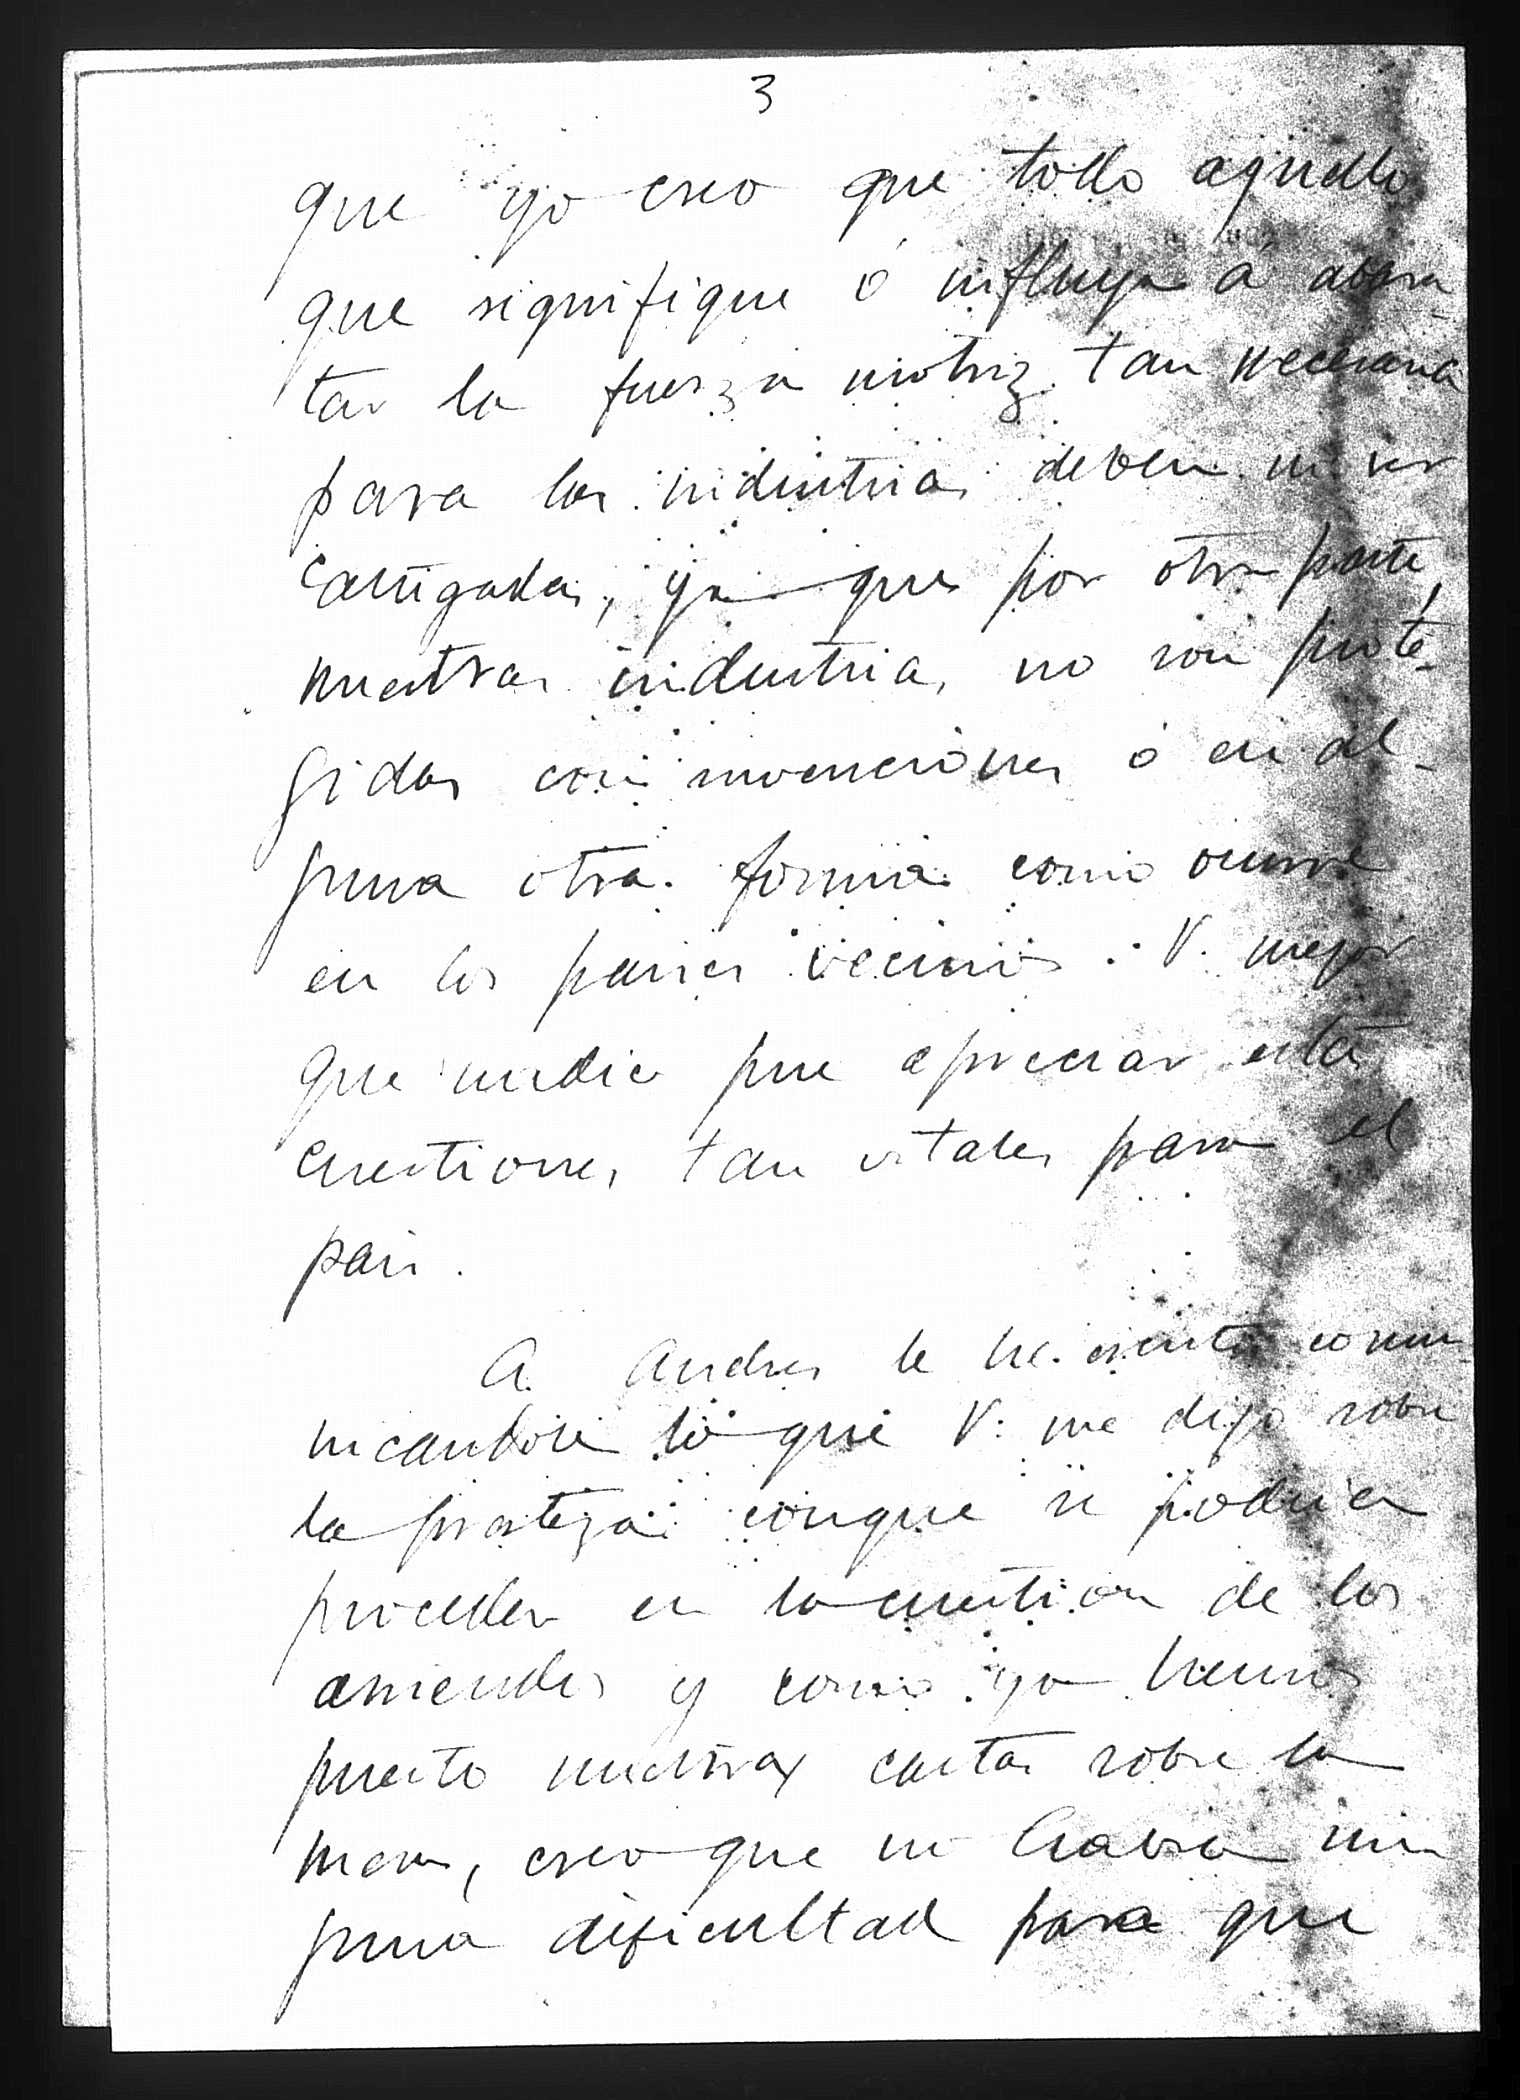 3
que yo creo que todo aquello
que signifique ó influya á abara-
tar la fuerza motriz tan necesaria
para las industrias deben ser
castigadas, ya que por otra parte,
nuestras industrias no son prote-
gidas con subvenciones ó en al-
guna otra forma como ocurre
en los paises vecinos. V. mejor
que nadie pue apreciar estas
cuestiones tan vitales para el
pais.
A Andres le he escrito comu-
nicandole lo que V. me dijo sobre
la presteza conque se podria
proceder en la cuestion de los
arriendos y como ya hemos
puesto nuestras cartas sobre la
mesa, creo que no habra nin
guna dificultad para que